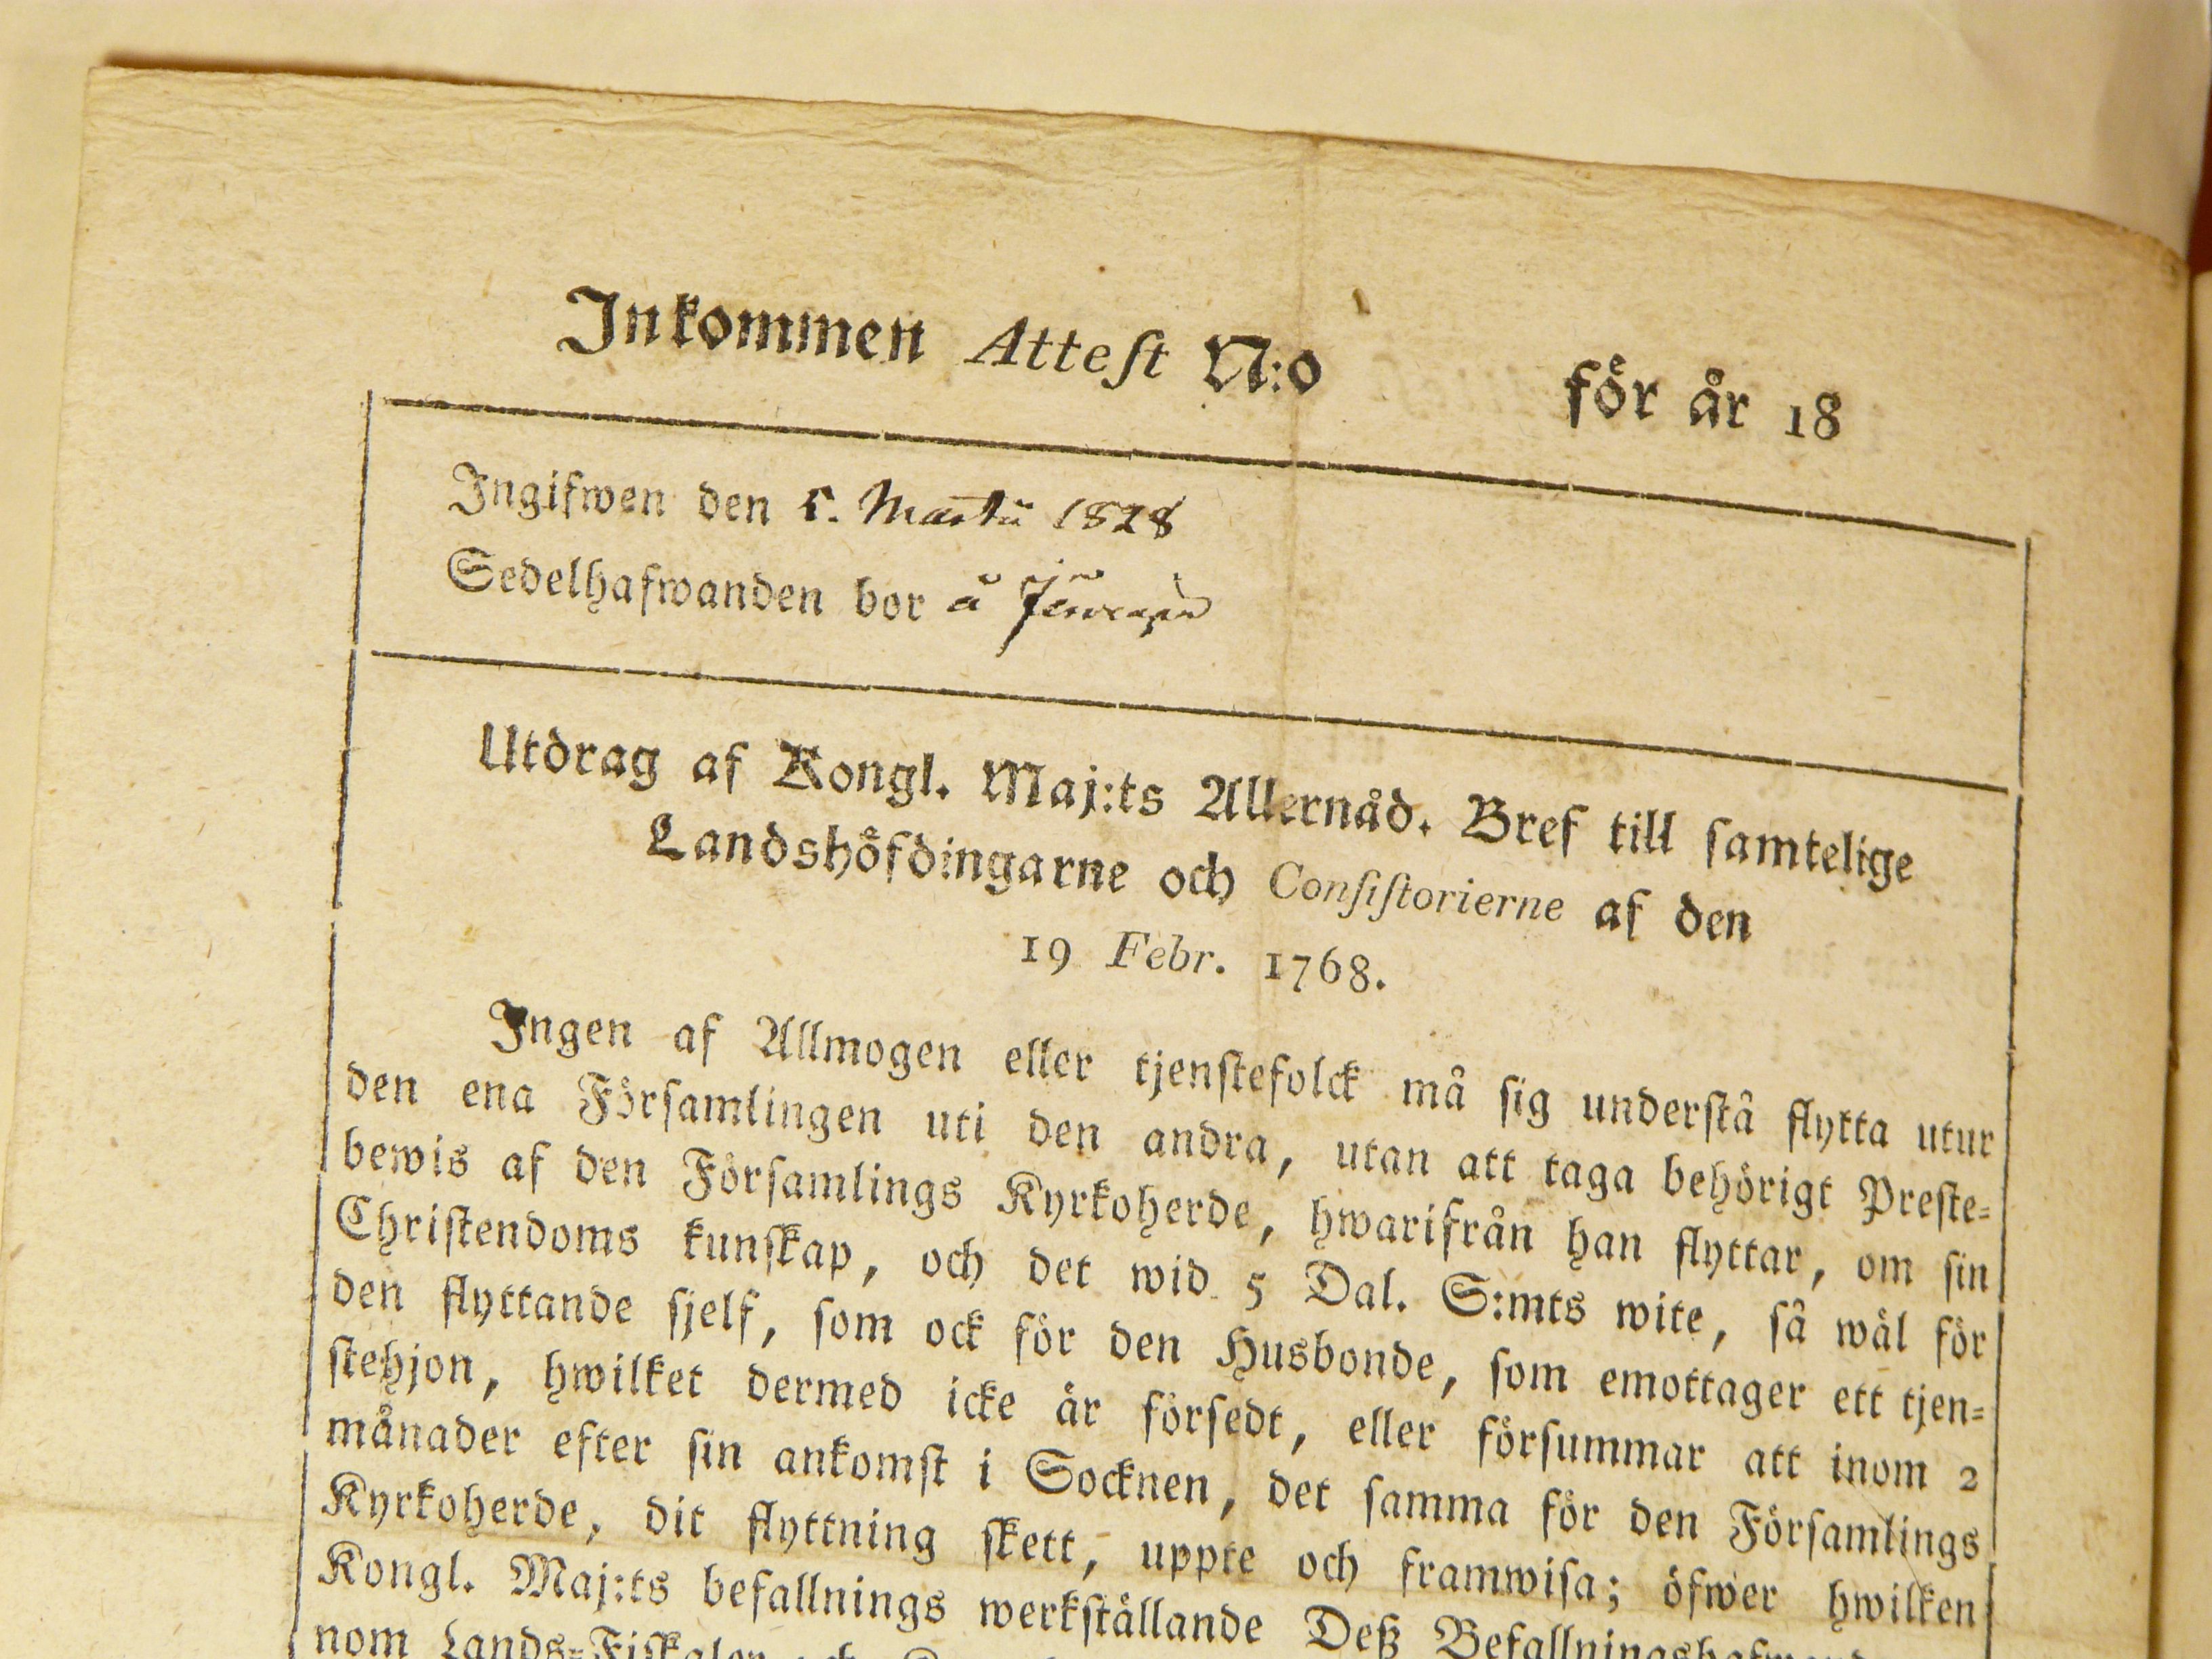 Inkommen Attest N:o för år 18
Ingifwen den 5. Martii 1828
Sedelhafwanden bor å
Utdrag af Kongl. Maj:ts Allernåd. Bref till samtelige
Landshöfdingarne och Consistorierne af den
19 Febr. 1768.
Ingen af Allmogen eller tjenstefolck må sig understå flytta utur
den ena Församlingen uti den andra, utan att taga behörigt Preste-
bewis af den Församlings Kyrkoherde, hwarifrån han flyttar, om sin
Christendoms kunskap, och det wid 5 Dal. S:mts wite, så wäl för
den flyttande sjelf, som ock för den Husbonde, som emottager ett tjen-
stehjon, hwilket dermed icke är försedt, eller försummar att inom 2
månader efter sin ankomst i Socknen, det samma för den Församlings
Kyrkoherde, dit flyttning skett, uppte och framwisa; öfwer hwilken
Kongl. Maj:ts befallnings werkställande Deß
nom Lands-Fiskaler